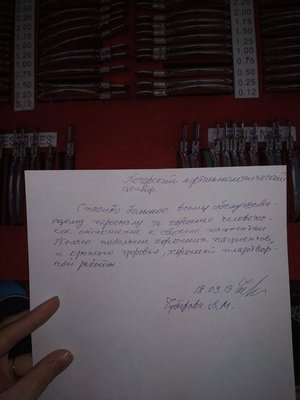 2.25
2.00
1.75
1.50
1.25
1.00
0.75
0.50
0.25
0.12
офтальмологический
центр.
Спасибо большое всему обслужива-
ющему персоналу за хорошее человечес-
кое отношение к своим пациентам
Желаю побольше хороших пациентов,
и крепкого здоровья, хорошей плодотвор-
ной работы
18.09.19